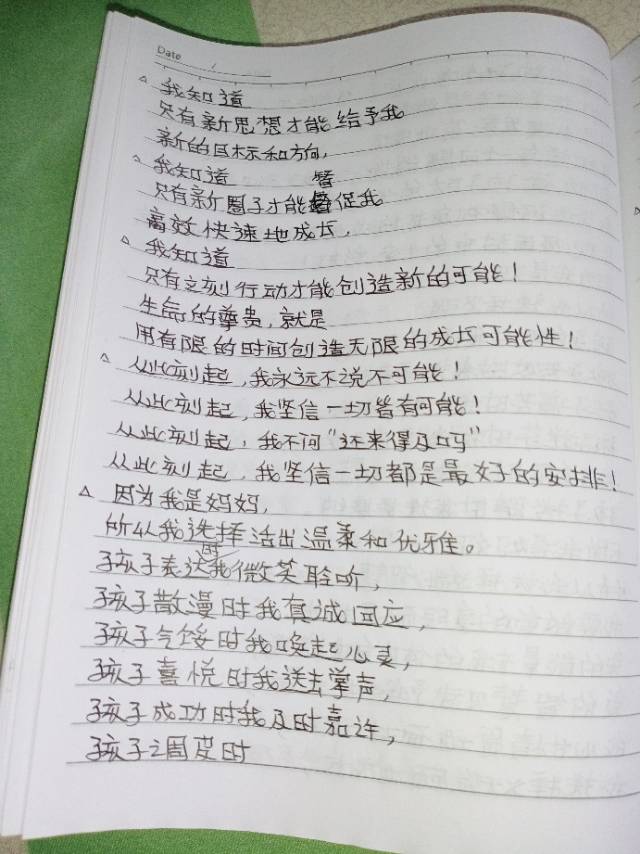 Date
△ 我知道
只有新思想才能给予我
新的目标和方向,
△ 我知道
只有新圈子才能督促我
高效快速地成长,
△ 我知道
只有立刻行动才能创造新的可能！
生命的尊贵，就是
用有限的时间创造无限的成长可能性！
△ 从此刻起，我永远不说不可能！
从此刻起，我坚信一切皆有可能！
从此刻起，我不问“还来得及吗”
从此刻起，我坚信一切都是最好的安排！
△ 因为我是妈妈，
所以我选择活出温柔和优雅。
孩子表达时我微笑聆听，
孩子散漫时我真诚回应，
孩子气馁时我唤起心灵，
孩子喜悦时我送去掌声，
孩子成功时我及时嘉许，
孩子调皮时